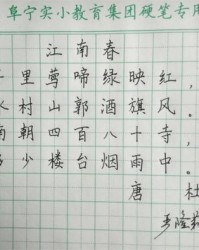 阜宁实小教育集团硬笔专用
江南春
千里莺啼绿映红，
水村山郭酒旗风。
南朝四百八十寺，
多少楼台烟雨中。
唐 杜